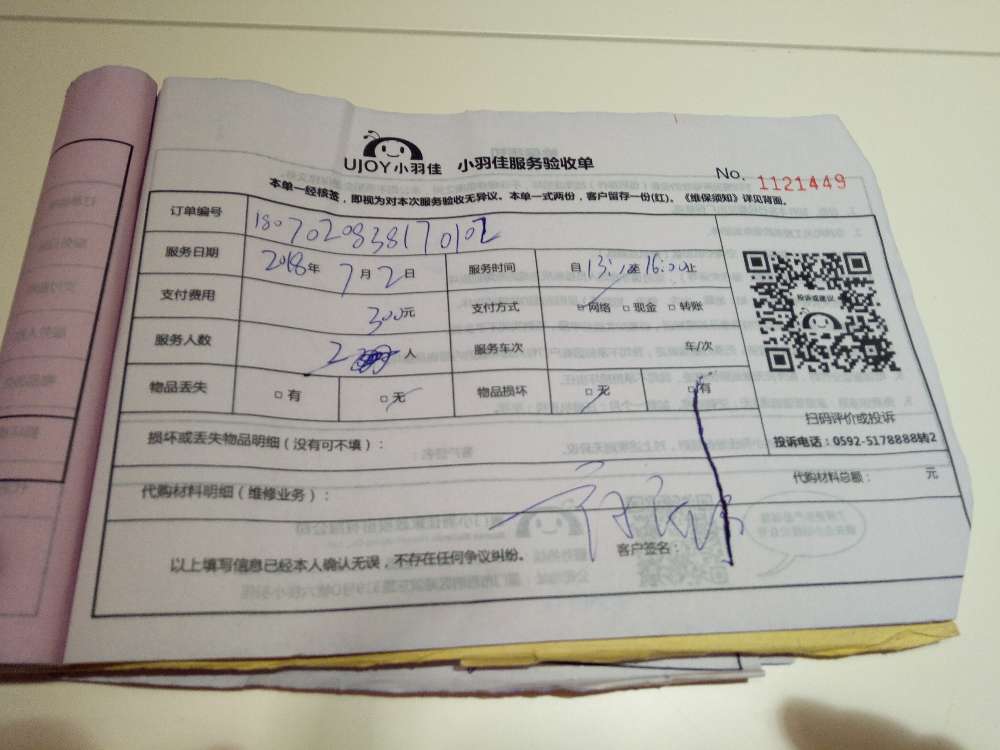 UJOY小羽佳 小羽佳服务验收单
No. 1121449
本单一经核签，即视为对本次服务验收无异议。本单一式两份，客户留存一份(红)。《维保须知》详见背面。
订单编号 1807020838170102
服务日期 2018年7月2日 服务时间 自13: 至16:00止
支付费用 300元 支付方式 □网络 □现金 □转账
服务人数 2 人 服务车次 车/次
物品丢失 □有 □无 物品损坏 □无 □有
投诉或建议
扫码评价或投诉
投诉电话：0592-5178888转2
损坏或丢失物品明细（没有可不填）：
代购材料明细（维修业务）： 代购材料总额： 元
以上填写信息已经本人确认无误，不存在任何争议纠纷。 客户签名：